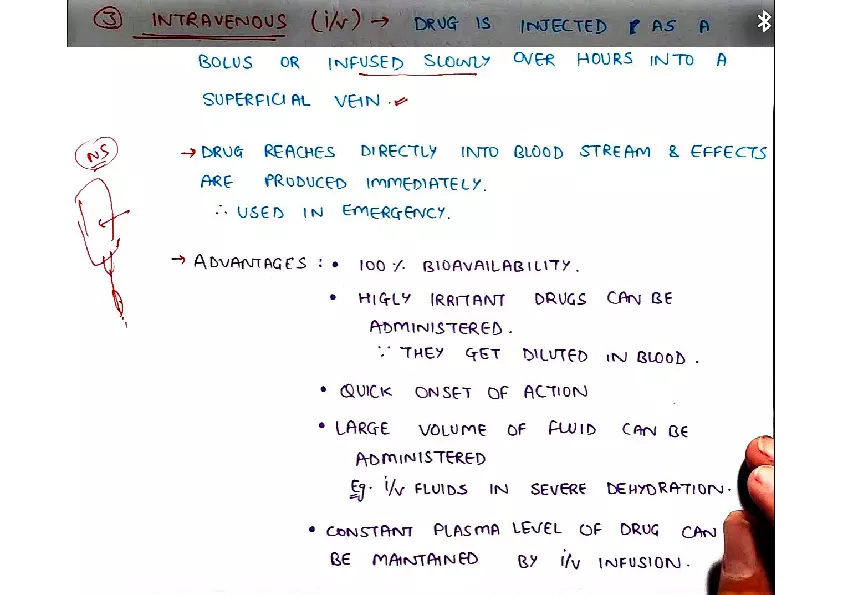 ③ INTRAVENOUS (i/v) → DRUG IS INJECTED AS A
BOLUS OR INFUSED SLOWLY OVER HOURS INTO A
SUPERFICIAL VEIN.
NS
→ DRUG REACHES DIRECTLY INTO BLOOD STREAM & EFFECTS
ARE PRODUCED IMMEDIATELY.
∴ USED IN EMERGENCY.
→ ADVANTAGES : • 100 % BIOAVAILABILITY.
• HIGLY IRRITANT DRUGS CAN BE
ADMINISTERED.
∵ THEY GET DILUTED IN BLOOD.
• QUICK ONSET OF ACTION
• LARGE VOLUME OF FLUID CAN BE
ADMINISTERED
Eg. i/v FLUIDS IN SEVERE DEHYDRATION.
• CONSTANT PLASMA LEVEL OF DRUG CAN
BE MAINTAINED BY i/v INFUSION.